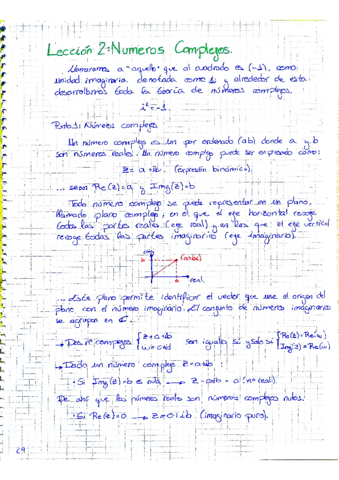 Lección 2: Numeros Complejos.
Llamaremos a "aquello" que al cuadrado es (-1), como
unidad imaginaria denotada como i; y alrededor de esta
desarrollamos toda la teoría de números complejos.
i²=-1.
Punto 1: Números complejos
Un número complejo es un par ordenado (a,b) donde a y b
son números reales. Un número complejo puede ser expresado como:
Z= a+ib. (expresión binómica).
... sean Re(z)=a y Img(z)=b
Todo número complejo se puede representar en un plano,
llamado plano complejo, en el que el eje horizontal recoge
todas las partes reales (eje real) y en las que el eje vertical
recoge todas las partes imaginarias (eje imaginario).
img
b (a+bi)
a real
... este plano permite identificar el vector que une el origen del
plano con el número imaginario. El conjunto de números imaginarios
se agrupan en C.
→ Dos nº complejos { Z=a+ib
w=c+id son iguales si y solo si { Re(z)=Re(w)
Img(z)=Re(w)
→ Dado un número complejo Z=a+ib :
· Si Img(z)=b es nula → Z=a+ib=a (nº real).
De ahí que los números reales son números complejos nulos.
· Si Re(z)=0 → Z=0+ib (imaginario puro).